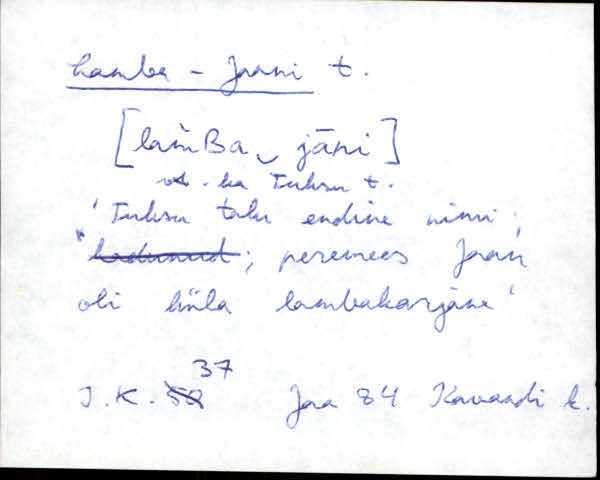 Lamba-Jaani t.
[lam̀Ba‿jāni]
vt. ka Tuksu t.
'Tuksu talu endine nimi;
; peremees Jaan
oli küla lambakarjane'
37
J.K. Jaa 84 Kavandi k.